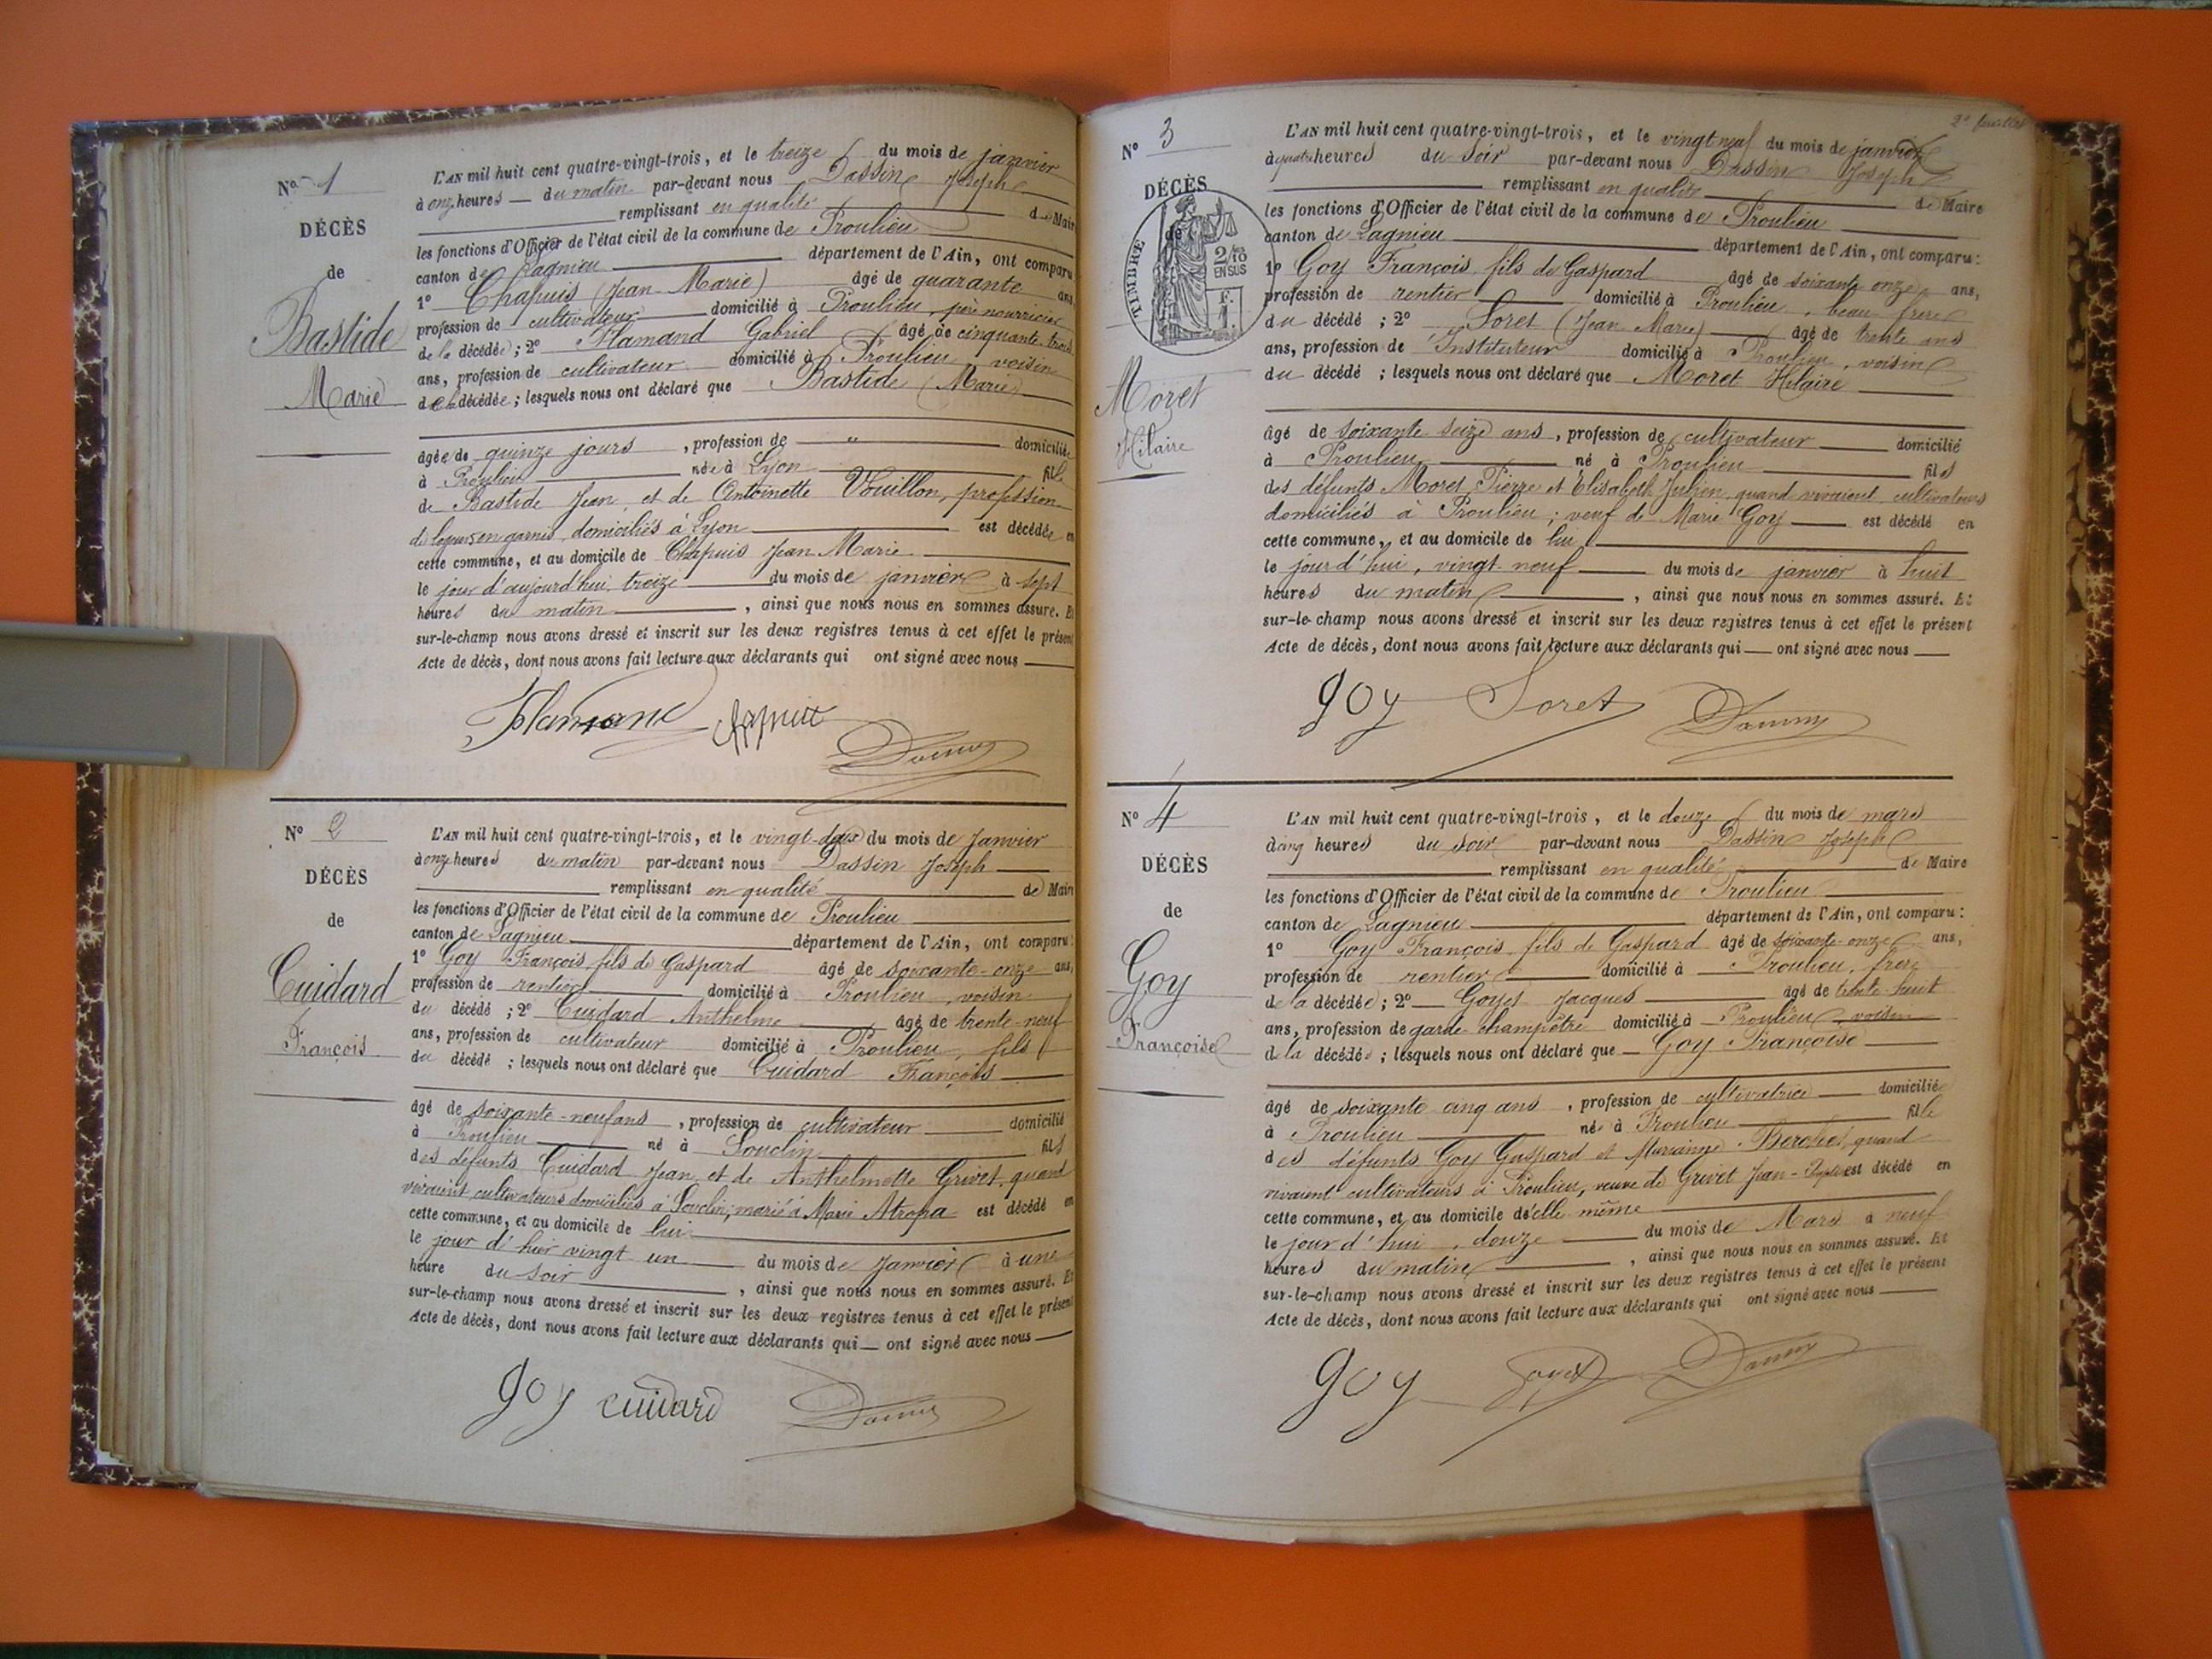 N° 1
DÉCÈS
de
Bastide
Marie
L'AN mil huit cent quatre-vingt-trois, et le treize du mois de janvier
à onze heures du matin par-devant nous Dassin Joseph
remplissant en qualité de Maire
les fonctions d'Officier de l'état civil de la commune de Proulieu
canton de Lagnieu département de l'Ain, ont comparu
1° Chapuis (Jean Marie) âgé de quarante ans,
profession de cultivateur domicilié à Proulieu, père nourricier
de la décédée; 2° Flamand Gabriel âgé de cinquante trois
ans, profession de cultivateur domicilié à Proulieu voisin
de la décédée; lesquels nous ont déclaré que Bastide (Marie)
âgée de quinze jours, profession de " domiciliée
à Proulieu née à Lyon fille
de Bastide Jean, et de Antoinette Vouillon, profession
de en garnis, domiciliés à Lyon est décédée en
cette commune, et au domicile de Chapuis Jean Marie
le jour d'aujourd'hui treize du mois de janvier à sept
heures du matin, ainsi que nous nous en sommes assuré. Et
sur-le-champ nous avons dressé et inscrit sur les deux registres tenus à cet effet le présent
Acte de décès, dont nous avons fait lecture aux déclarants qui ont signé avec nous
Flamand Chapuis
N° 2
DÉCÈS
de
Cuidard
François
L'AN mil huit cent quatre-vingt-trois, et le vingt-deux du mois de Janvier
à onze heures du matin par-devant nous Dassin Joseph
remplissant en qualité de Maire
les fonctions d'Officier de l'état civil de la commune de Proulieu
canton de Lagnieu département de l'Ain, ont comparu:
1° Goy François fils de Gaspard âgé de soixante-onze ans,
profession de rentier domicilié à Proulieu, voisin
du décédé; 2° Cuidard Anthelme âgé de trente-neuf
ans, profession de cultivateur domicilié à Proulieu, fils
du décédé; lesquels nous ont déclaré que Cuidard François
âgé de soixante-neuf ans, profession de cultivateur domicilié
à Proulieu né à Souclin fils
des défunts Cuidard Jean et de Anthelmette Grivet, quand
vivaient cultivateurs domiciliés à Souclin; marié à Marie Atropa est décédé en
cette commune, et au domicile de lui
le jour d'hier vingt un du mois de Janvier à une
heure du soir, ainsi que nous nous en sommes assuré. Et
sur-le-champ nous avons dressé et inscrit sur les deux registres tenus à cet effet le présent
Acte de décès, dont nous avons fait lecture aux déclarants qui ont signé avec nous
Goy Cuidard
2e feuillet
N° 3
DÉCÈS
de
TIMBRE
2/10
EN SUS
F.
1.
Moret
Hilaire
L'AN mil huit cent quatre-vingt-trois, et le vingt-neuf du mois de janvier
à quatre heures du soir par-devant nous Dassin Joseph
remplissant en qualité de Maire
les fonctions d'Officier de l'état civil de la commune de Proulieu
canton de Lagnieu département de l'Ain, ont comparu:
1° Goy François fils de Gaspard âgé de soixante onze ans,
profession de rentier domicilié à Proulieu, beau frère
du décédé; 2° Soret (Jean Marie) âgé de trente ans
ans, profession de Instituteur domicilié à Proulieu, voisin
du décédé; lesquels nous ont déclaré que Moret Hilaire
âgé de soixante seize ans, profession de cultivateur domicilié
à Proulieu né à Proulieu fils
des défunts Moret Pierre et Elisabeth Julien, quand vivaient cultivateurs
domiciliés à Proulieu; veuf de Marie Goy est décédé en
cette commune, et au domicile de lui
le jour d'hui, vingt-neuf du mois de janvier à huit
heures du matin, ainsi que nous nous en sommes assuré. Et
sur-le-champ nous avons dressé et inscrit sur les deux registres tenus à cet effet le présent
Acte de décès, dont nous avons fait lecture aux déclarants qui ont signé avec nous
Goy Soret
N° 4
DÉCÈS
de
Goy
Françoise
L'AN mil huit cent quatre-vingt-trois, et le douze du mois de mars
à cinq heures du soir par-devant nous Dassin Joseph
remplissant en qualité de Maire
les fonctions d'Officier de l'état civil de la commune de Proulieu
canton de Lagnieu département de l'Ain, ont comparu:
1° Goy François fils de Gaspard âgé de soixante-onze ans,
profession de rentier domicilié à Proulieu, frère
de la décédée; 2° Goyet Jacques âgé de trente-huit
ans, profession de garde-champêtre domicilié à Proulieu voisin
de la décédée; lesquels nous ont déclaré que Goy Françoise
âgé de soixante cinq ans, profession de cultivatrice domiciliée
à Proulieu née à Proulieu fille
des défunts Goy Gaspard et Marianne Berchet, quand
vivaient cultivateurs à Proulieu, veuve de Grivet Jean- est décédé en
cette commune, et au domicile d'elle même
le jour d'hui, douze du mois de Mars à neuf
heures du matin, ainsi que nous nous en sommes assuré. Et
sur-le-champ nous avons dressé et inscrit sur les deux registres tenus à cet effet le présent
Acte de décès, dont nous avons fait lecture aux déclarants qui ont signé avec nous
Goy Goyet